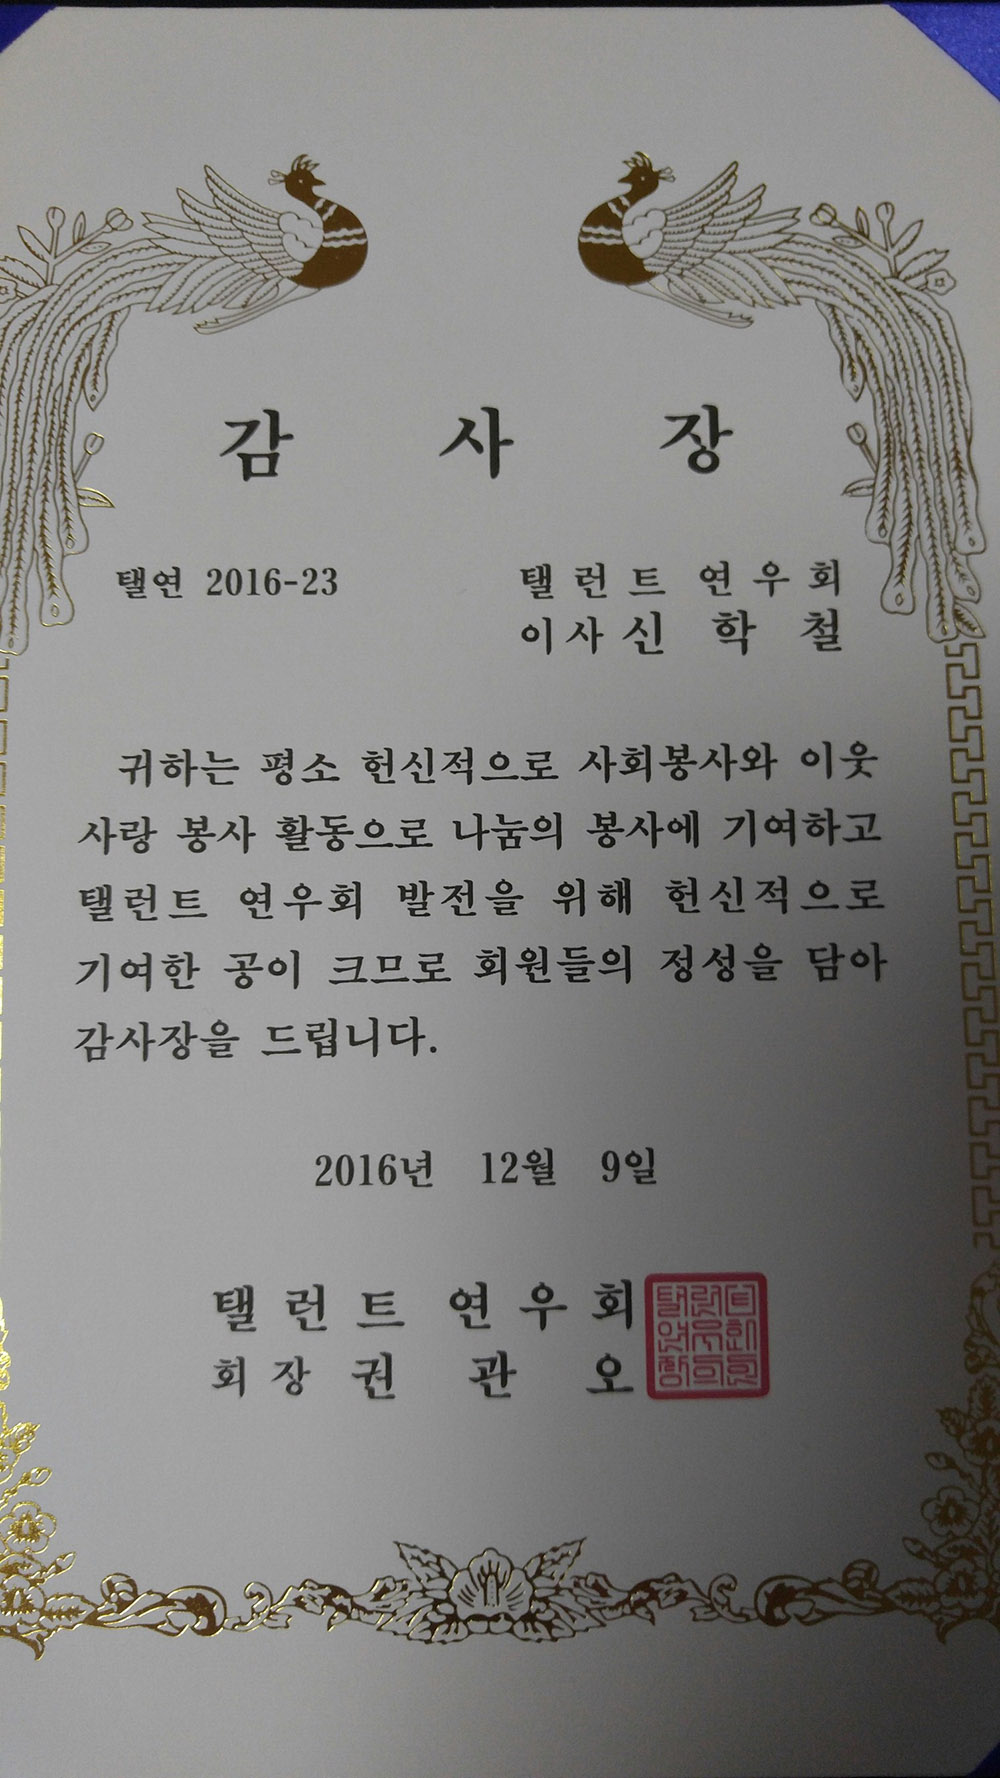 감 사 장
탤연 2016-23
탤런트 연우회
이사 신 학 철
귀하는 평소 헌신적으로 사회봉사와 이웃
사랑 봉사 활동으로 나눔의 봉사에 기여하고
탤런트 연우회 발전을 위해 헌신적으로
기여한 공이 크므로 회원들의 정성을 담아
감사장을 드립니다.
2016년 12월 9일
탤런트 연우회
회장 권 관 오